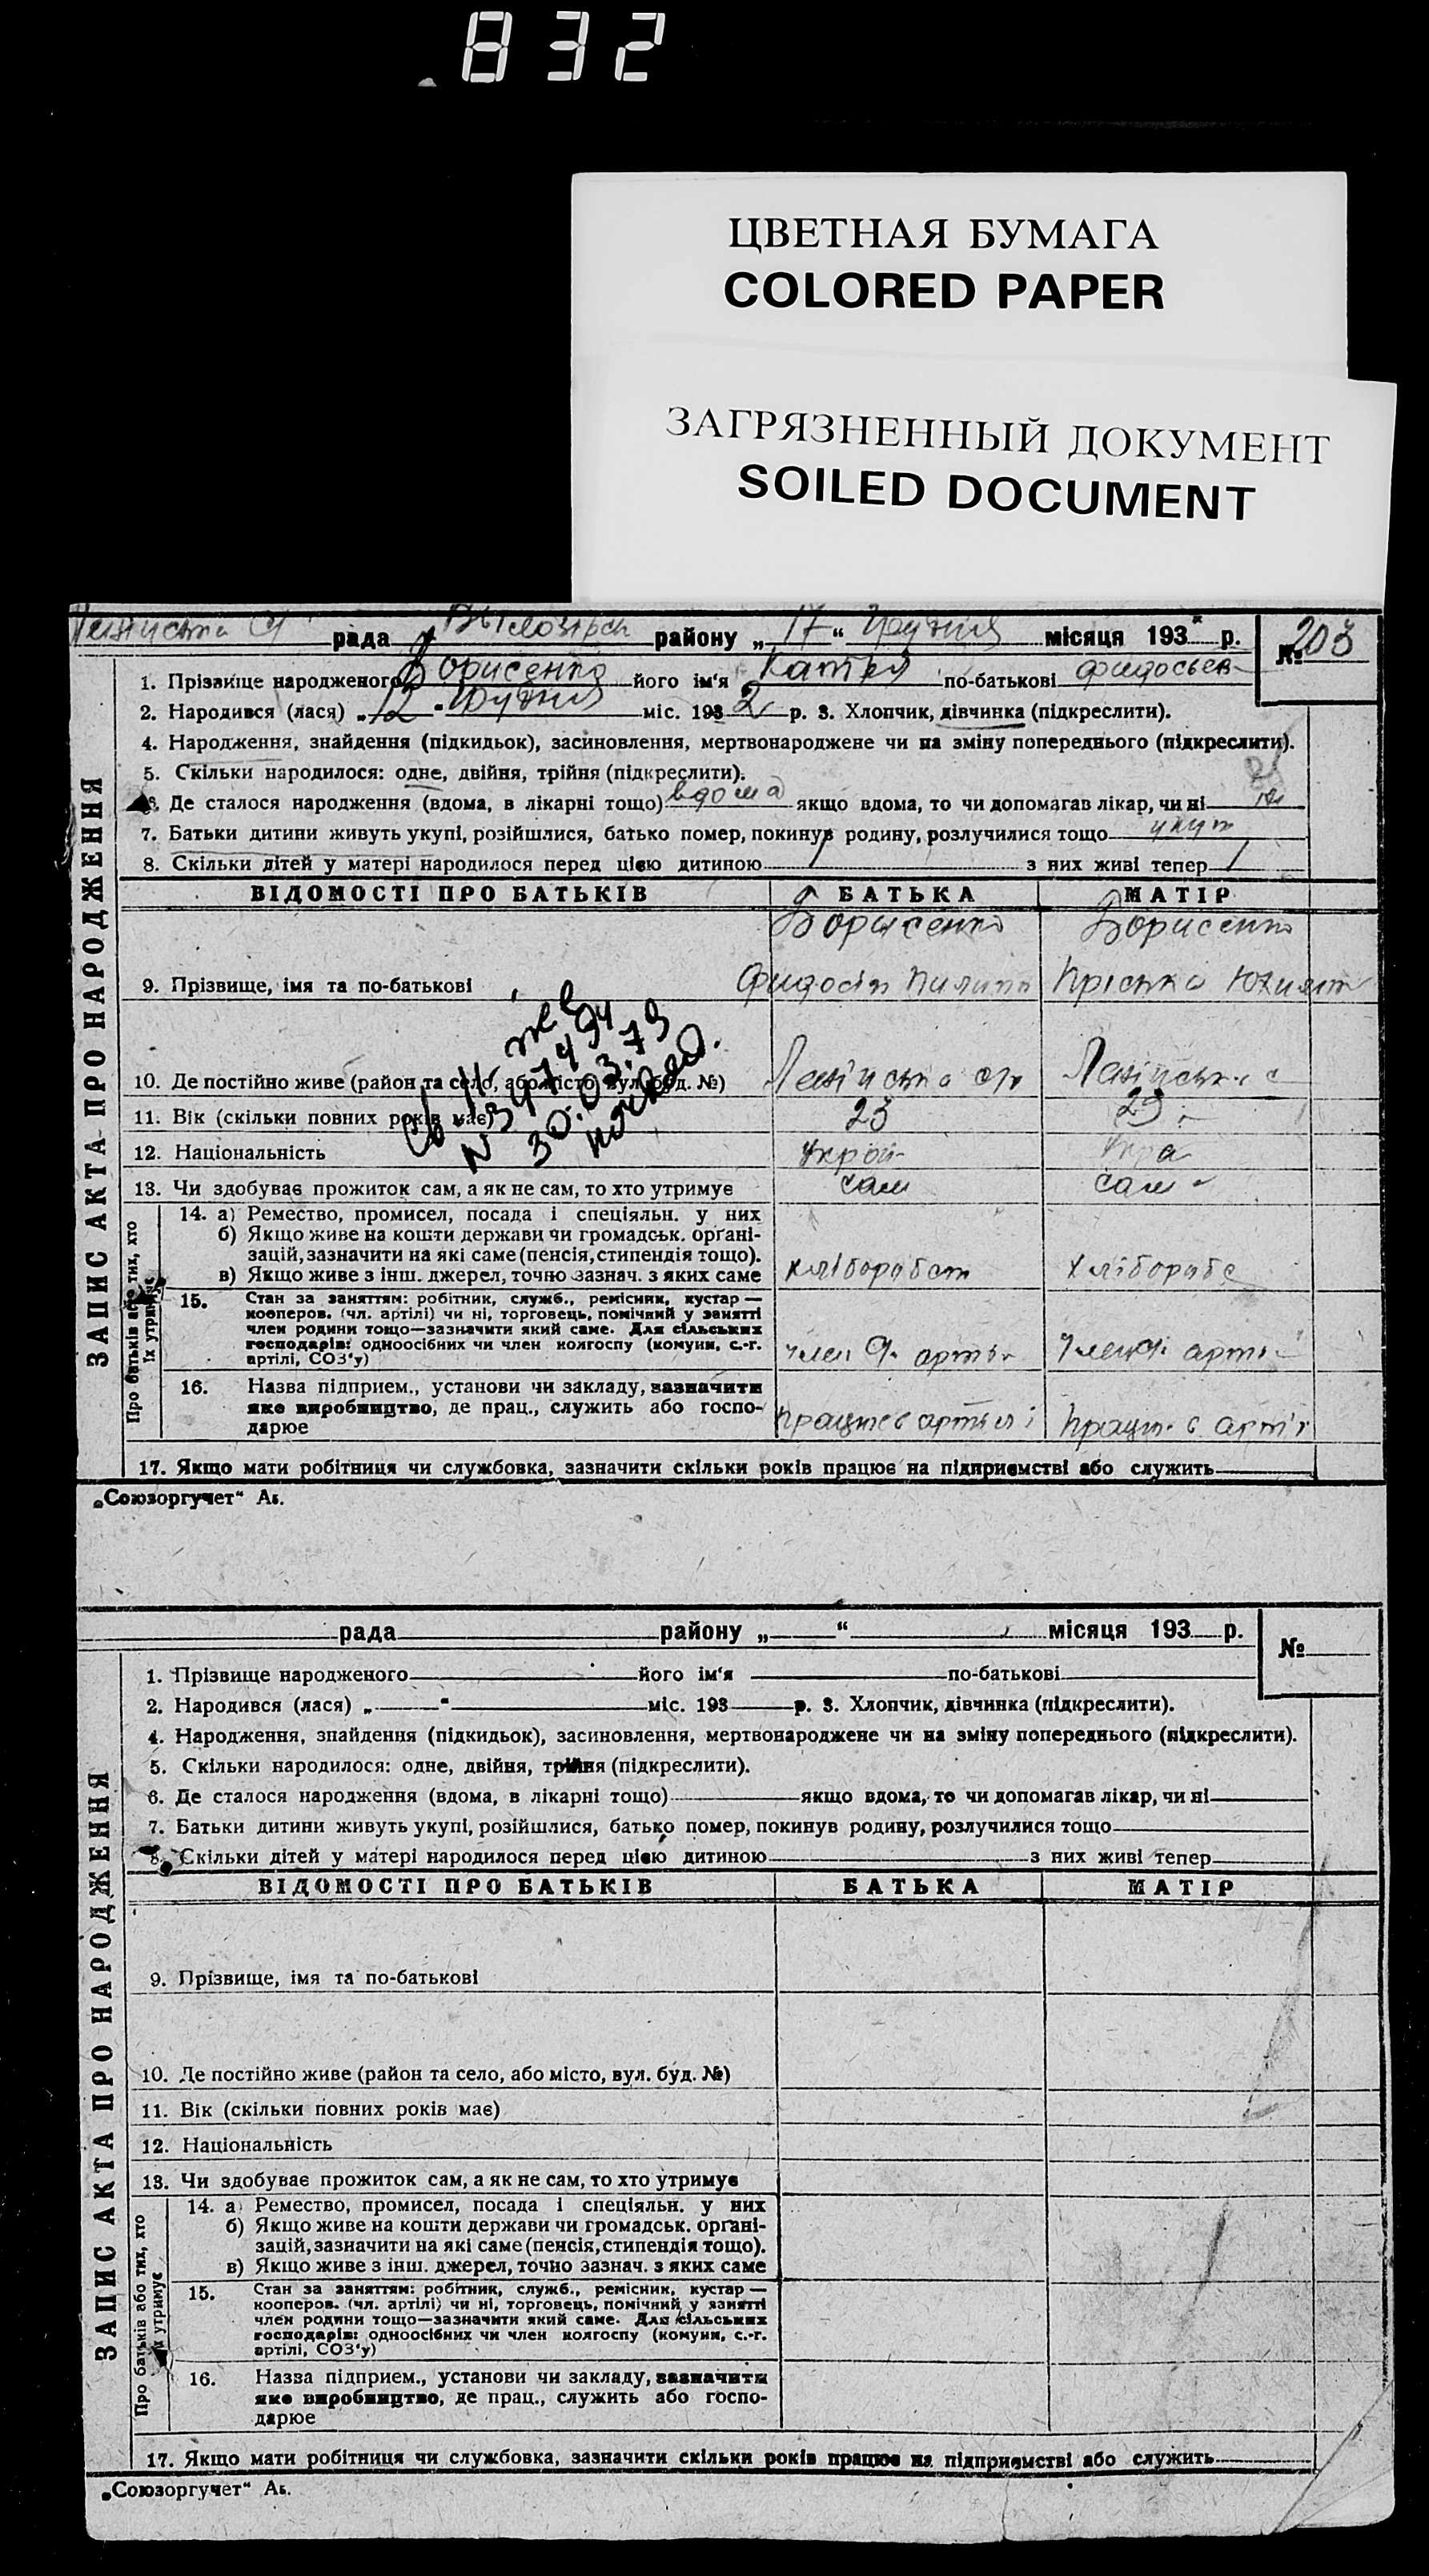 832
ЦВЕТНАЯ БУМАГА
COLORED PAPER
ЗАГРЯЗНЕННЫЙ ДОКУМЕНТ
SOILED DOCUMENT
ЗАПИС АКТА ПРО НАРОДЖЕННЯ
рада району „17“ Грудня місяця 193 р. № 203
1. Прізвище народженого Борисенко його ім'я Катря по-батькові Фидосьев
2. Народився (лася) „12" Грудня міс. 1932 р. 3. Хлопчик, дівчинка (підкреслити).
4. Народження, знайдення (підкидьок), засиновлення, мертвонароджене чи на зміну попереднього (підкреслити).
5. Скільки народилося: одне, двійня, трійня (підкреслити).
6. Де сталося народження (вдома, в лікарні тощо) вдома якщо вдома, то чи допомагав лікар, чи ні
7. Батьки дитини живуть укупі, розійшлися, батько помер, покинув родину, розлучилися тощо укуп
8. Скільки дітей у матері народилося перед цією дитиною 1 з них живі тепер 1
ВІДОМОСТІ ПРО БАТЬКІВ БАТЬКА МАТІР
Борисенко Борисенко
9. Прізвище, імя та по-батькові Фидосій Пилип Пріська Юхим
10. Де постійно живе (район та село, або місто, вул. буд. №)
11. Вік (скільки повних років має) 23 23
12. Національність Украй Укра
13. Чи здобуває прожиток сам, а як не сам, то хто утримує сам сам
Про батьків або тих, хто їх утримує
14. а) Ремество, промисел, посада і спеціяльн. у них
б) Якщо живе на кошти держави чи громадськ. органі-
зацій, зазначити на які саме (пенсія, стипендія тощо).
в) Якщо живе з інш. джерел, точно зазнач. з яких саме хліборобст хлібороб
15. Стан за заняттям: робітник, служб., ремісник, кустар —
кооперов. (чл. артілі) чи ні, торговець, помічний у занятті
член родини тощо—зазначити який саме. Для сільських
господарів: одноосібних чи член колгоспу (комуни, с.-г.
артілі, СОЗ'у) член
16. Назва підприєм., установи чи закладу, зазначити
яке виробництво, де прац., служить або госпо-
дарюе
17. Якщо мати робітниця чи службовка, зазначити скільки років працює на підприємстві або служить
„Союзоргучет“ Аз.
30.03.79
ЗАПИС АКТА ПРО НАРОДЖЕННЯ
рада району „ “ місяця 193 р. №
1. Прізвище народженого його ім'я по-батькові
2. Народився (лася) „ " міс. 193 р. 3. Хлопчик, дівчинка (підкреслити).
4. Народження, знайдення (підкидьок), засиновлення, мертвонароджене чи на зміну попереднього (підкреслити).
5. Скільки народилося: одне, двійня, трійня (підкреслити).
6. Де сталося народження (вдома, в лікарні тощо) якщо вдома, то чи допомагав лікар, чи ні
7. Батьки дитини живуть укупі, розійшлися, батько помер, покинув родину, розлучилися тощо
8. Скільки дітей у матері народилося перед цією дитиною з них живі тепер
ВІДОМОСТІ ПРО БАТЬКІВ БАТЬКА МАТІР
9. Прізвище, імя та по-батькові
10. Де постійно живе (район та село, або місто, вул. буд. №)
11. Вік (скільки повних років має)
12. Національність
13. Чи здобуває прожиток сам, а як не сам, то хто утримує
Про батьків або тих, хто їх утримує
14. а) Ремество, промисел, посада і спеціяльн. у них
б) Якщо живе на кошти держави чи громадськ. органі-
зацій, зазначити на які саме (пенсія, стипендія тощо).
в) Якщо живе з інш. джерел, точно зазнач. з яких саме
15. Стан за заняттям: робітник, служб., ремісник, кустар —
кооперов. (чл. артілі) чи ні, торговець, помічний у занятті
член родини тощо—зазначити який саме. Для сільських
господарів: одноосібних чи член колгоспу (комуни, с.-г.
артілі, СОЗ'у)
16. Назва підприєм., установи чи закладу, зазначити
яке виробництво, де прац., служить або госпо-
дарюе
17. Якщо мати робітниця чи службовка, зазначити скільки років працює на підприємстві або служить
„Союзоргучет“ Аз.